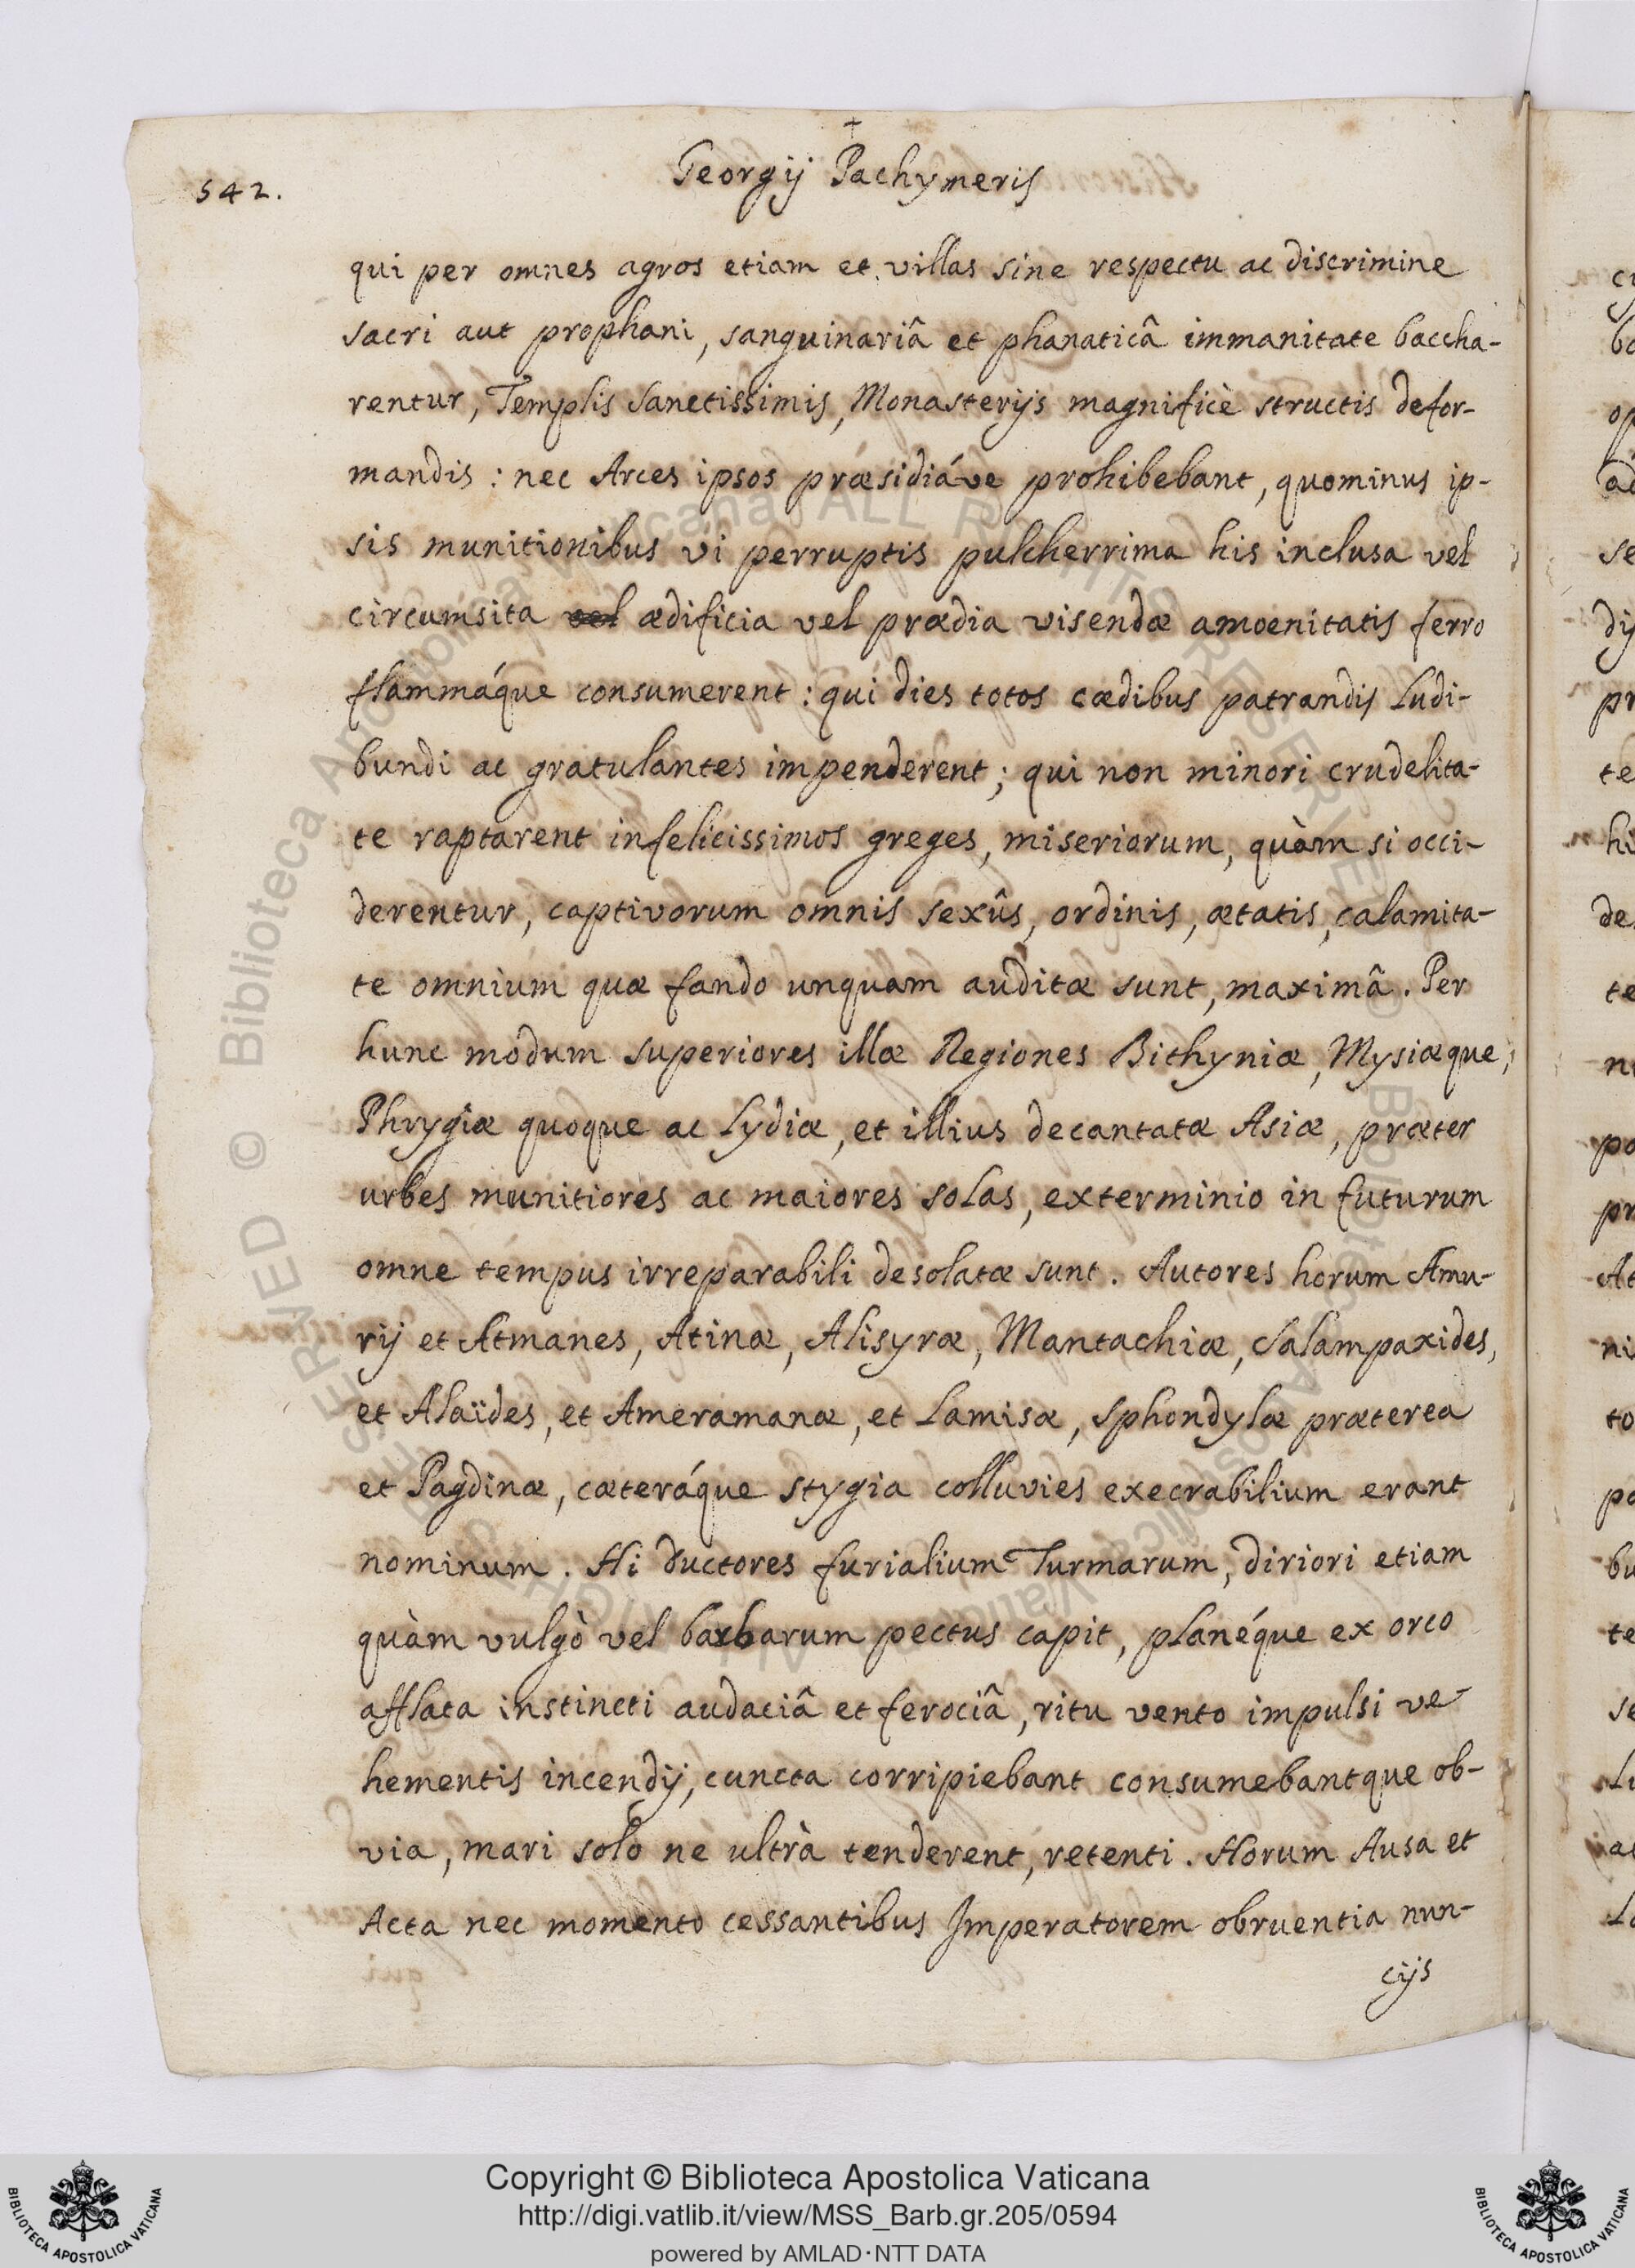 542.
Georgij Pachymeris
qui per omnes agros etiam et villas sine respectu ac discrimine
sacri aut prophani, sanguinariâ et phanaticâ immanitate baccha-
rentur, Templis Sanctissimis, Monasterijs magnificè structis defor-
mandis: nec Arces ipsos præsidiáve prohibebant, quominus ip-
sis munitionibus vi perruptis pulcherrima his inclusa vel
circumsita vel ædificia vel prædia visendæ amoenitatis ferro
flammáque consumerent: qui dies totos cædibus patrandis ludi-
bundi ac gratulantes impenderent; qui non minori crudelita-
te raptarent infelicissimos greges, miseriorum, quàm si occi-
derentur, captivorum omnis sexûs, ordinis, ætatis, calamita-
te omnium quæ fando unquam auditæ sunt, maximâ. Per
hunc modum superiores illæ Regiones Bithyniæ, Mysiæque,
Phrygiæ quoque ac Lydiæ, et illius decantatæ Asiæ, præter
urbes munitiores ac maiores solas, exterminio in futurum
omne tempus irreparabili desolatæ sunt. Autores horum Amu-
rij et Atmanes, Atinæ, Alisyræ, Mantachiæ, Salampaxides,
et Alaïdes, et Ameramanæ, et Lamisæ, Sphondylæ præterea
et Pagdinæ, cæteráque stygia colluvies execrabilium erant
nominum. Hi ductores furialium Turmarum, diriori etiam
quàm vulgò vel barbarum pectus capit, planéque ex orco
afflata instincti audaciâ et ferociâ, ritu vento impulsi ve-
hementis incendij, cuncta corripiebant consumebantque ob-
via, mari solo ne ultrà tenderent, retenti. Horum Ausa et
Acta nec momento cessantibus Imperatorem obruentia nun-
cijs
Copyright © Biblioteca Apostolica Vaticana
http://digi.vatlib.it/view/MSS_Barb.gr.205/0594
powered by AMLAD·NTT DATA
BIBLIOTECA APOSTOLICA VATICANA
BIBLIOTECA APOSTOLICA VATICANA